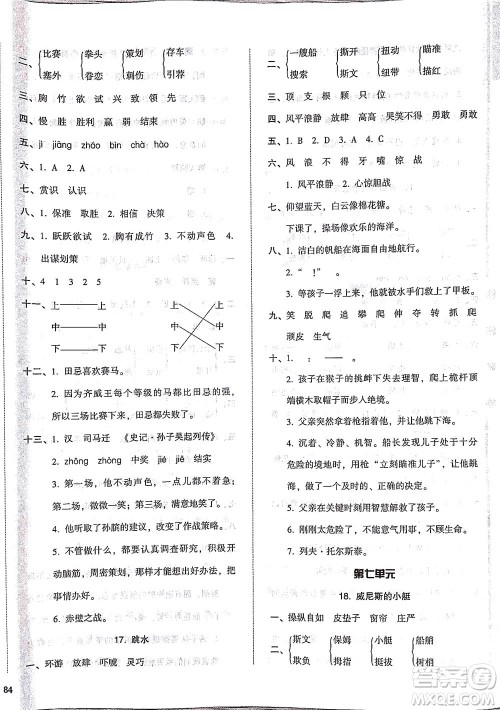 二、 比赛 拳头 策划 存车
塞外 眷恋 刺伤 引荐
三、胸 竹 欲 试 兴 致 领 先
四、慢 胜 胜利 赢 弱 结束
五、jì jiāng zháo bìn chà hào
六、C A
七、赏识 认识
八、1. 保准 取胜 2. 相信 决策
九、1. 跃跃欲试 2. 胸有成竹 3. 不动声色 4.
出谋划策
十、4 1 3 2 5
十一、上 上 上 上
中 中 中 中
下 下 下 下
十二、1. 田忌喜欢赛马。
2. 因为齐威王每个等级的马都比田忌的强，
所以三场比赛田忌都失败了。
十三、1. 汉 司马迁 《史记·孙子吴起列传》
2. zhòng zhōng 中奖 jié jiē 结实
3. 第一场，他不动声色，一点儿也不惊慌；
第二场，微微一笑；第三场，满意地笑了。
4. 他听取了孙膑的建议，改变了作战策略。
5. 不管做什么，都要认真调查研究，积极开
动脑筋，周密策划，按计划进行，这样才能把
事情办好。
6. 赤壁之战。
17. 跳水
一、环游 放肆 吓唬 灵巧
二、 一艘船 撕开 扭动 瞄准
搜索 斯文 纽带 描红
三、顶 支 根 颗 只 位
四、风平浪静 放肆 高兴 哭笑不得 勇敢 勇敢
五、1. B 2. D 3. A 4. C
六、风 浪 不 得 牙 嘴 惊 战
1. 风平浪静 2. 心惊胆战
七、仰望蓝天，白云像棉花糖。
下课了，操场像欢乐的海洋。
八、1. 洁白的帆船在海面自由地航行。
2. “ ！”。
3. 等孩子一浮上来，他就被水手们救到了甲板。
九、笑 脱 爬 追 攀 爬 伸 夺 转 抓 爬
顽皮 生气
十、1. ： ——
2. 孩子在猴子的挑衅下失去理智，爬上桅杆顶
端横木取帽子而下不来，处境危险。
3. 父亲拿枪逼着孩子，让他跳下海。
4. 沉着、冷静、机智。船长发现儿子处于危
险的境地时，用枪“立刻瞄准儿子”，让他跳
海，这是最正确的决定。
5. 父亲在关键时刻用智慧解救了孩子。
6. 刚刚太危险了，不要为了赌气，不顾生命。
7. 列夫·托尔斯泰。
第七单元
18. 威尼斯的小艇
一、操纵自如 皮垫子 窗帘 庄严
二、 斯文 保姆 小艇 船艄
欺负 拇指 挺拔 捎信
84